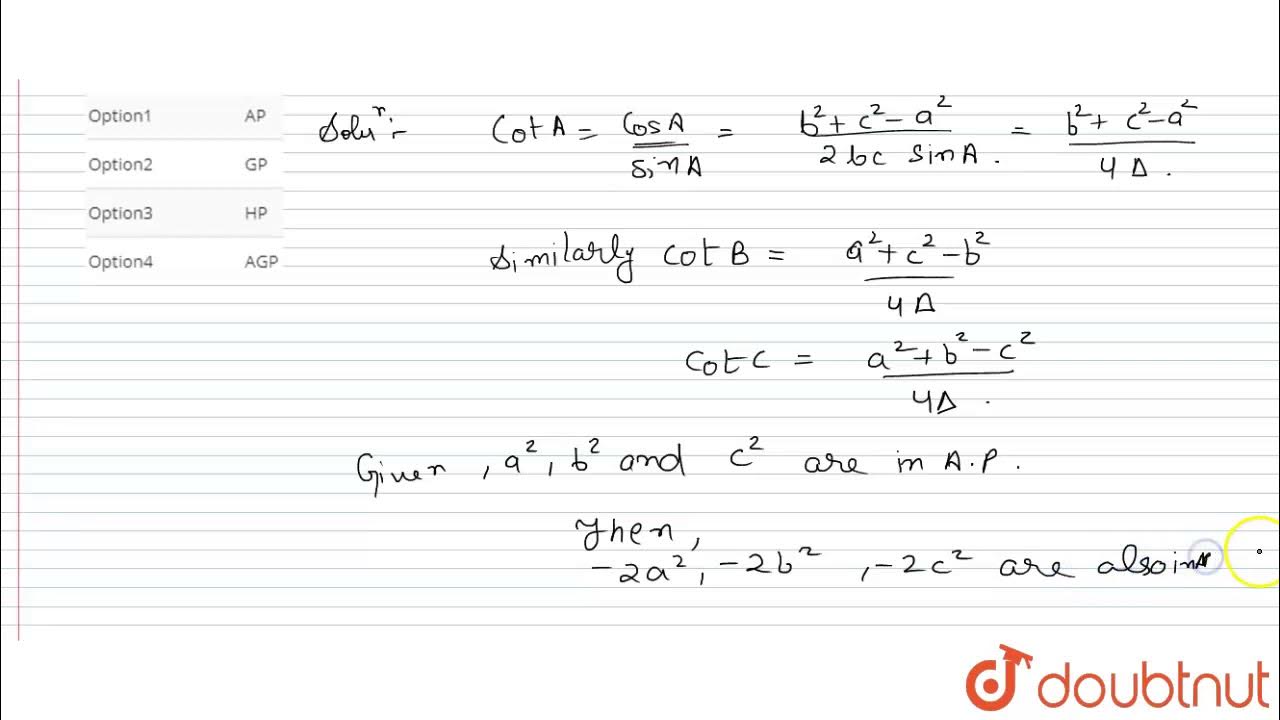 Option1 AP
Option2 GP
Option3 HP
Option4 AGP
Soluⁿ:- Cot A = Cos A / sin A = b² + c² - a² / 2bc Sin A . = b² + c² - a² / 4 Δ .
Similarly Cot B = a² + c² - b² / 4 Δ
Cot C = a² + b² - c² / 4Δ .
Given , a² , b² and c² are in A.P .
Then ,
-2a² , -2b² , -2c² are also in
doubtnut